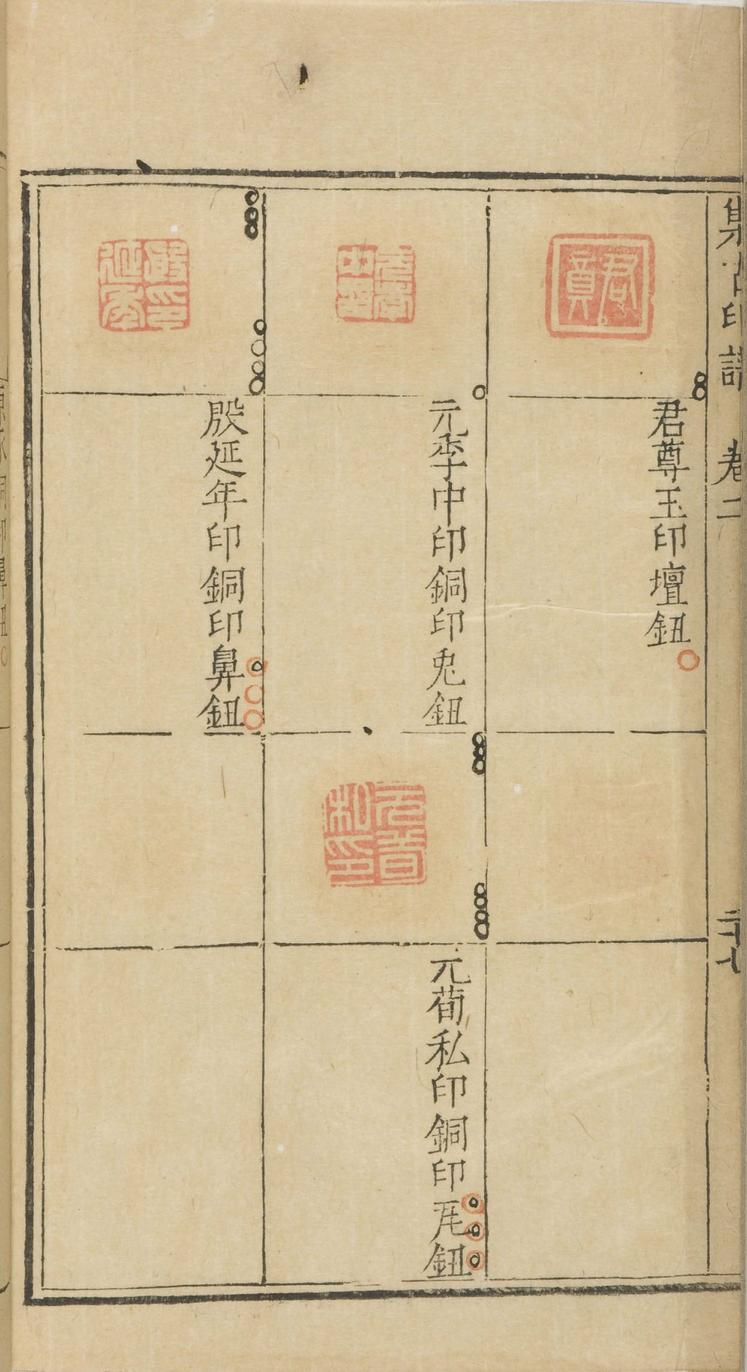 集古印譜 卷二
二十七
君尊玉印壇鈕
元李中印銅印兎鈕
元荀私印銅印瓦鈕
殷延年印銅印鼻鈕